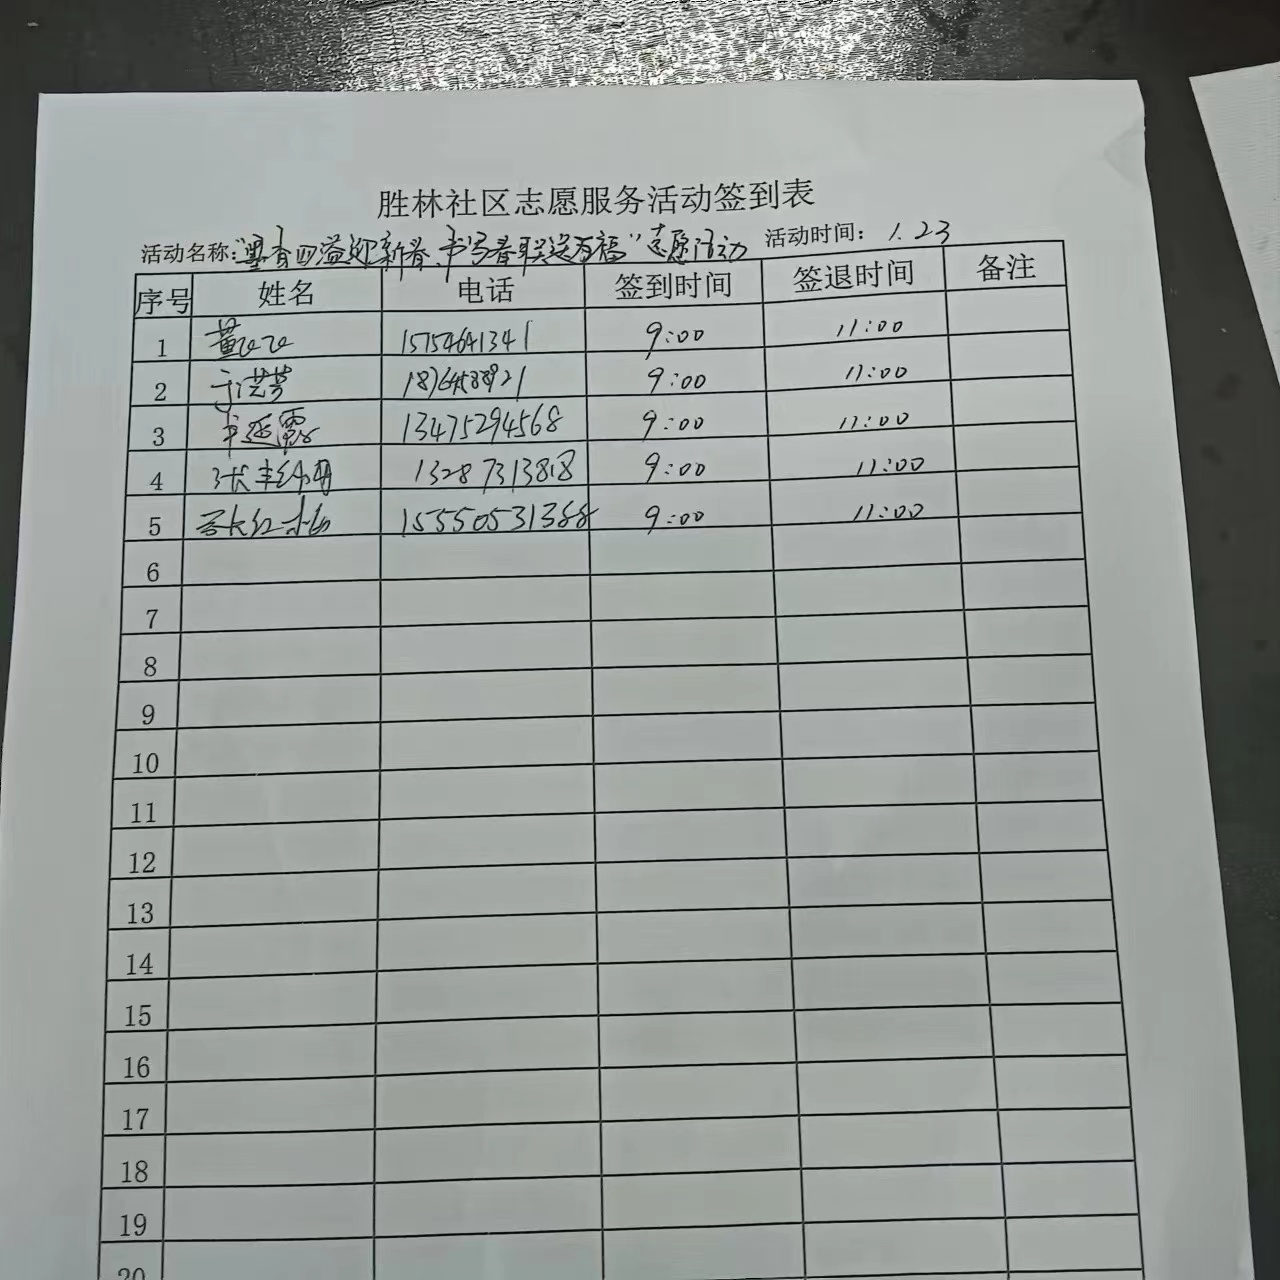 胜林社区志愿服务活动签到表
活动名称:"墨香四溢迎新春、书写春联送万福"志愿活动 活动时间: 1.23
序号 姓名 电话 签到时间 签退时间 备注
1 董 15754641341 9:00 11:00
2 于洪芳 18764538921 9:00 11:00
3 延霞 13475294568 9:00 11:00
4 张 13287313818 9:00 11:00
5 红梅 15550531388 9:00 11:00
6
7
8
9
10
11
12
13
14
15
16
17
18
19
20